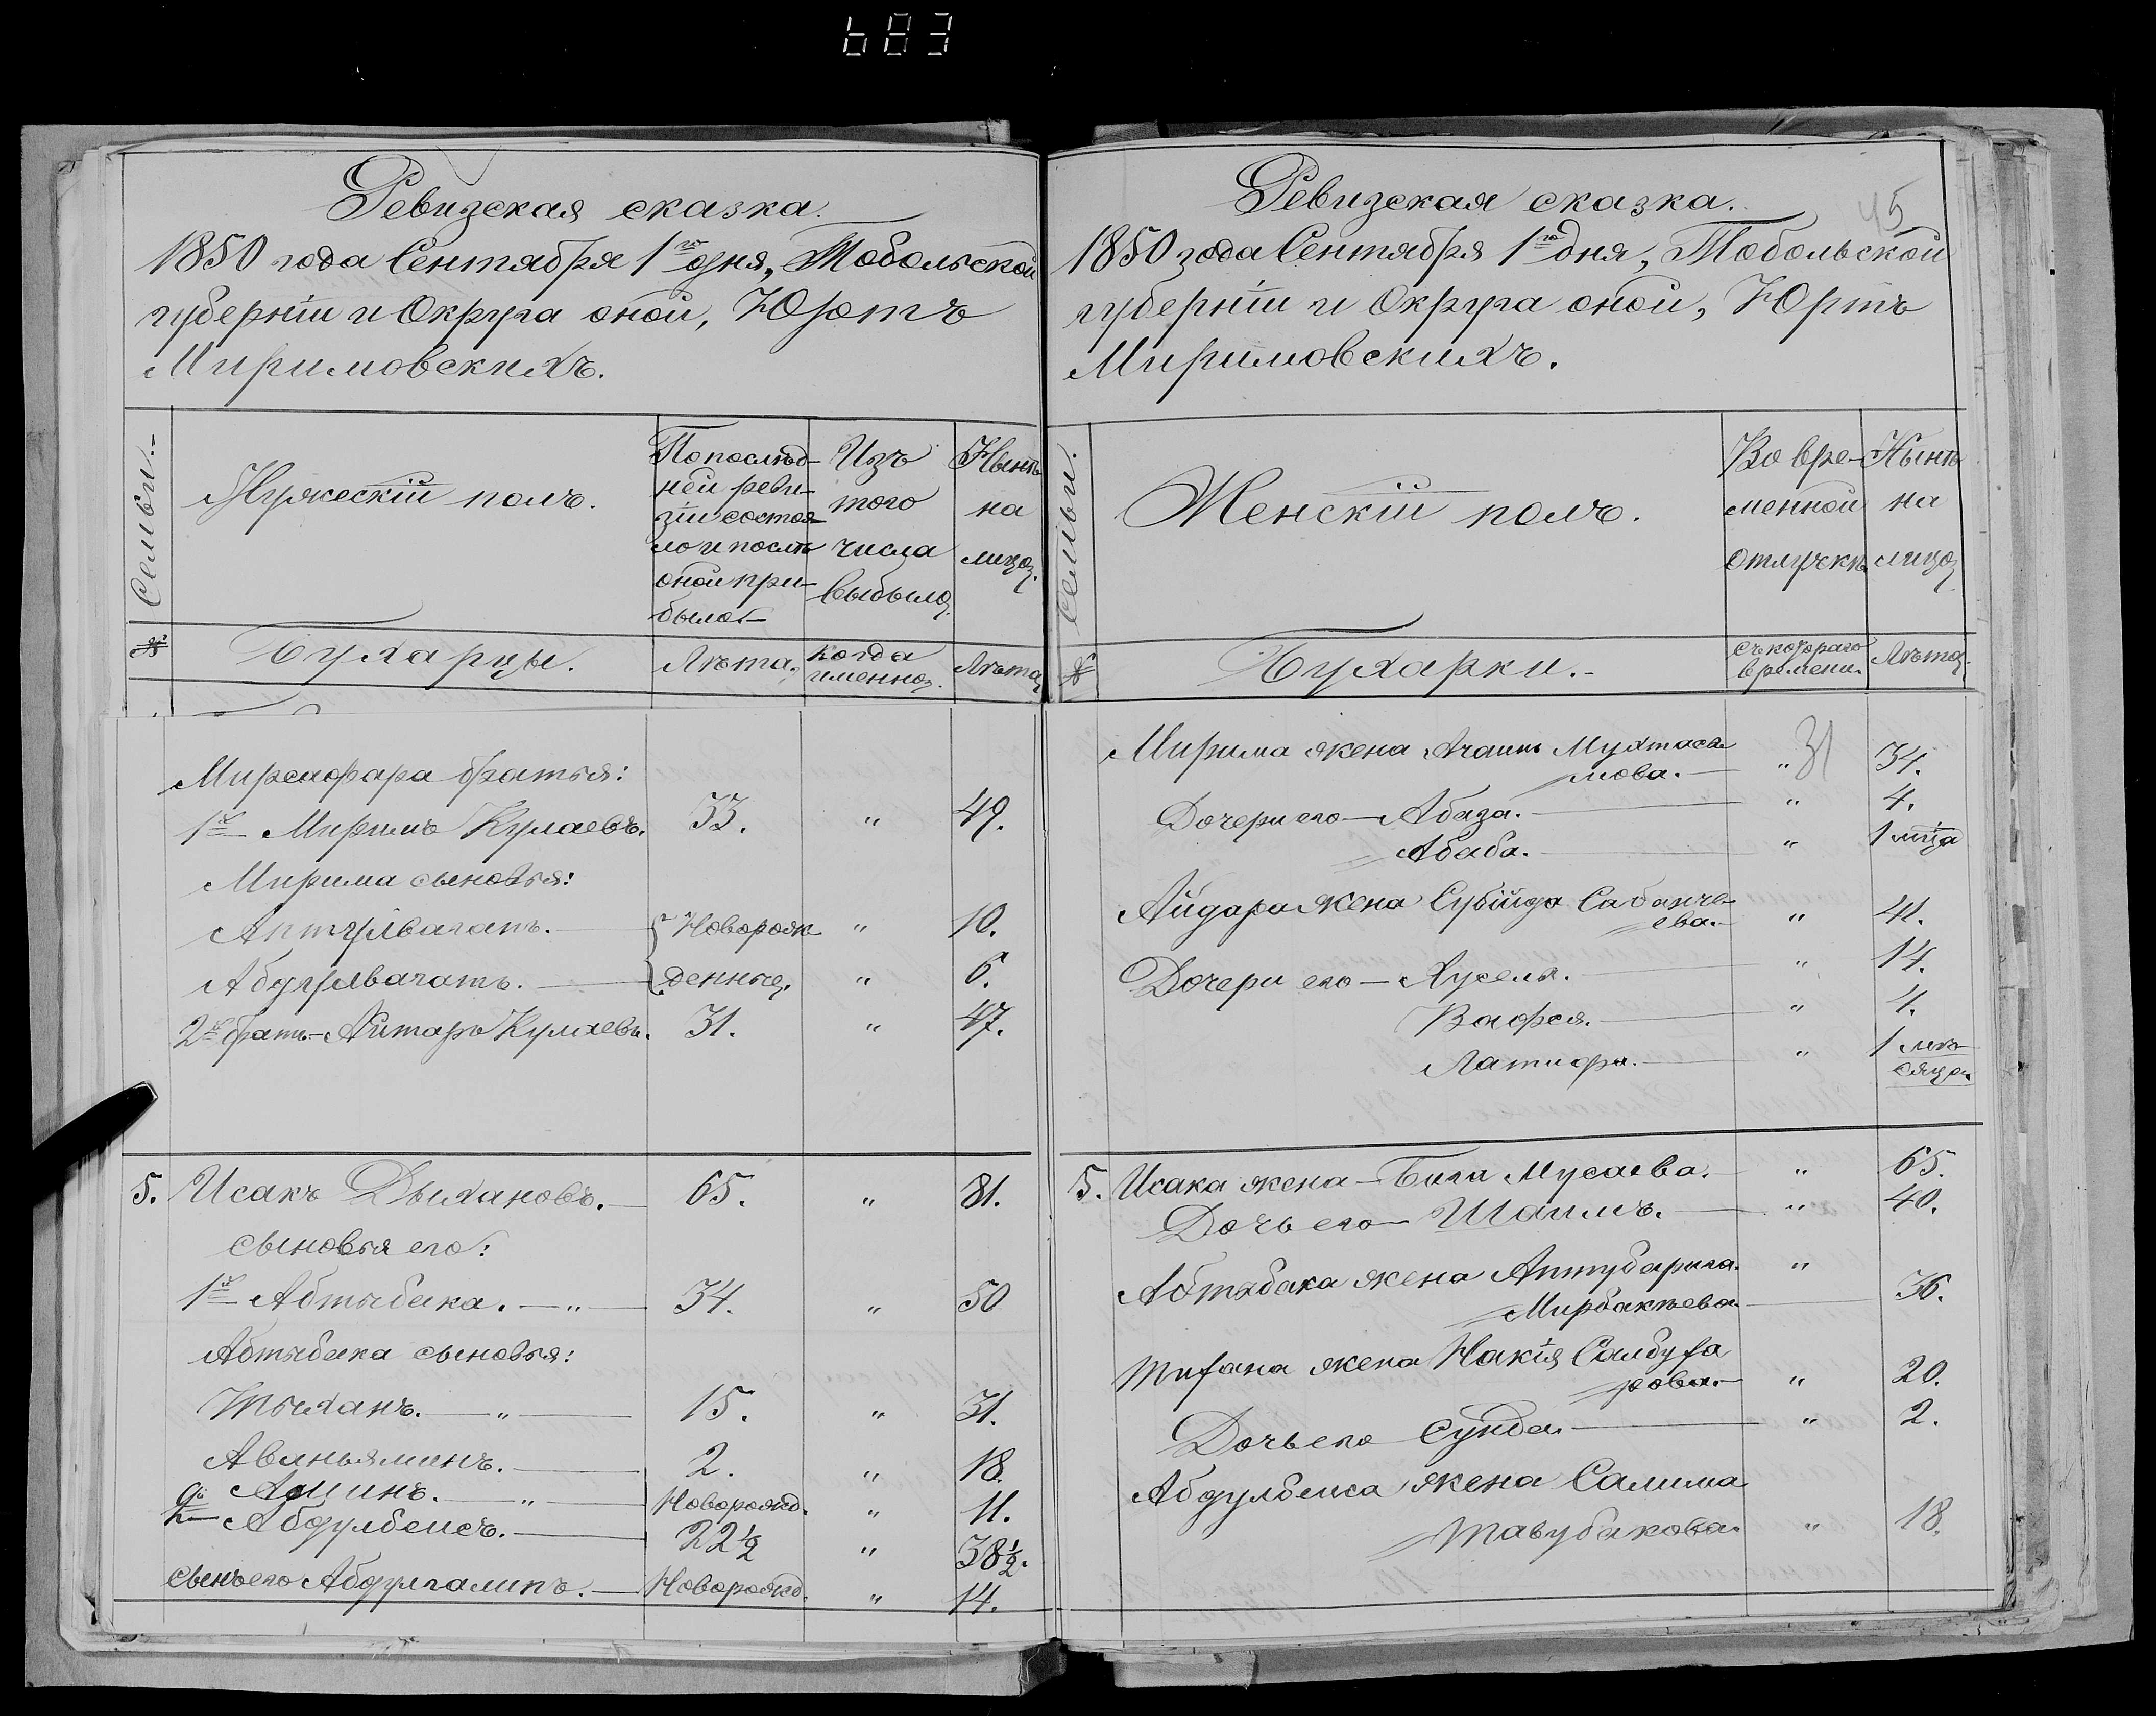 683
Ревизская сказка.
1850 года Сентября 1го дня, Тобольской
губерніи и Округа оной, Юртъ
Миримовскихъ.
Семьи.
Мужескій полъ.
По послѣд-
ней реви-
зіи состоя-
ло и послѣ
оной при-
было
Изъ
того
числа
выбыло.
Нынѣ
на
лицо.
№
Бухарцы.
Лѣта.
когда
именно.
Лѣта
братья:
1й Миримъ Кулаевъ. 33. " 49.
Мирима сыновья:
Новорож- " 10.
денные. " 6.
2й братъ Айтаръ Кулаевъ. 31. " 47.
5. Исакъ Дыхановъ. 65. " 81.
сыновья его:
1й Абтыбака. " 34. " 50
Абтыбака сыновья:
Тыханъ. " 15. " 31.
Аваньяминъ. 2. " 18.
Аминъ. " Новорожд. " 11.
2й Абдулбеисъ. 22 1/2 " 38 1/2.
сынъ его Абдулгалипъ. Новорожд. " 14.
Ревизская сказка.
45
1850 года Сентября 1го дня, Тобольской
губерніи и Округа оной, Юртъ
Миримовскихъ.
Семьи.
Женскій полъ.
Во вре-
менной
отлучкѣ
Нынѣ
на
лицо.
№
Бухарки.
съ котораго
времени.
Лѣта.
Мирима жена
мова. " 31 34.
Дочери его Абаза. " 4.
Абаба. " 1 мца
Айдара жена Субійда Сабанче-
ева. " 41.
Дочери его " 14.
Вафся. " 4.
Латифа. " 1 мѣ-
сяца
5. Исака жена Бига Мусаева. " 65.
Дочь его Шаимъ. " 40.
Абтябака жена Аптубарига "
Мирбакѣева. 36.
жена Накія Саибуга
рова. " 20.
Дочь его Сунда. " 2.
Абдулбеиса жена Салима
Тавубакова. " 18.